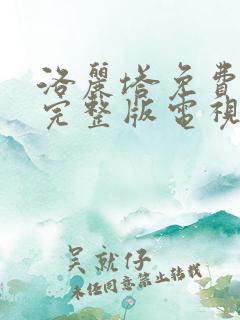 洛麗塔免費
完整版電視
吴就仔
未经同意禁止转载